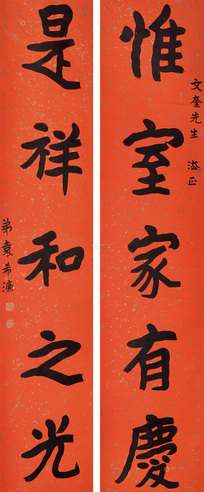 惟室家有慶
文奎先生 法正
是祥和之光
弟袁希濂